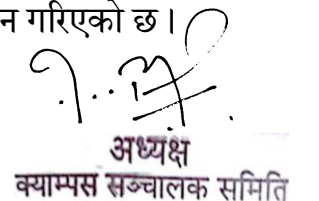 न गरिएको छ।
अध्यक्ष
क्याम्पस सञ्चालक समिति